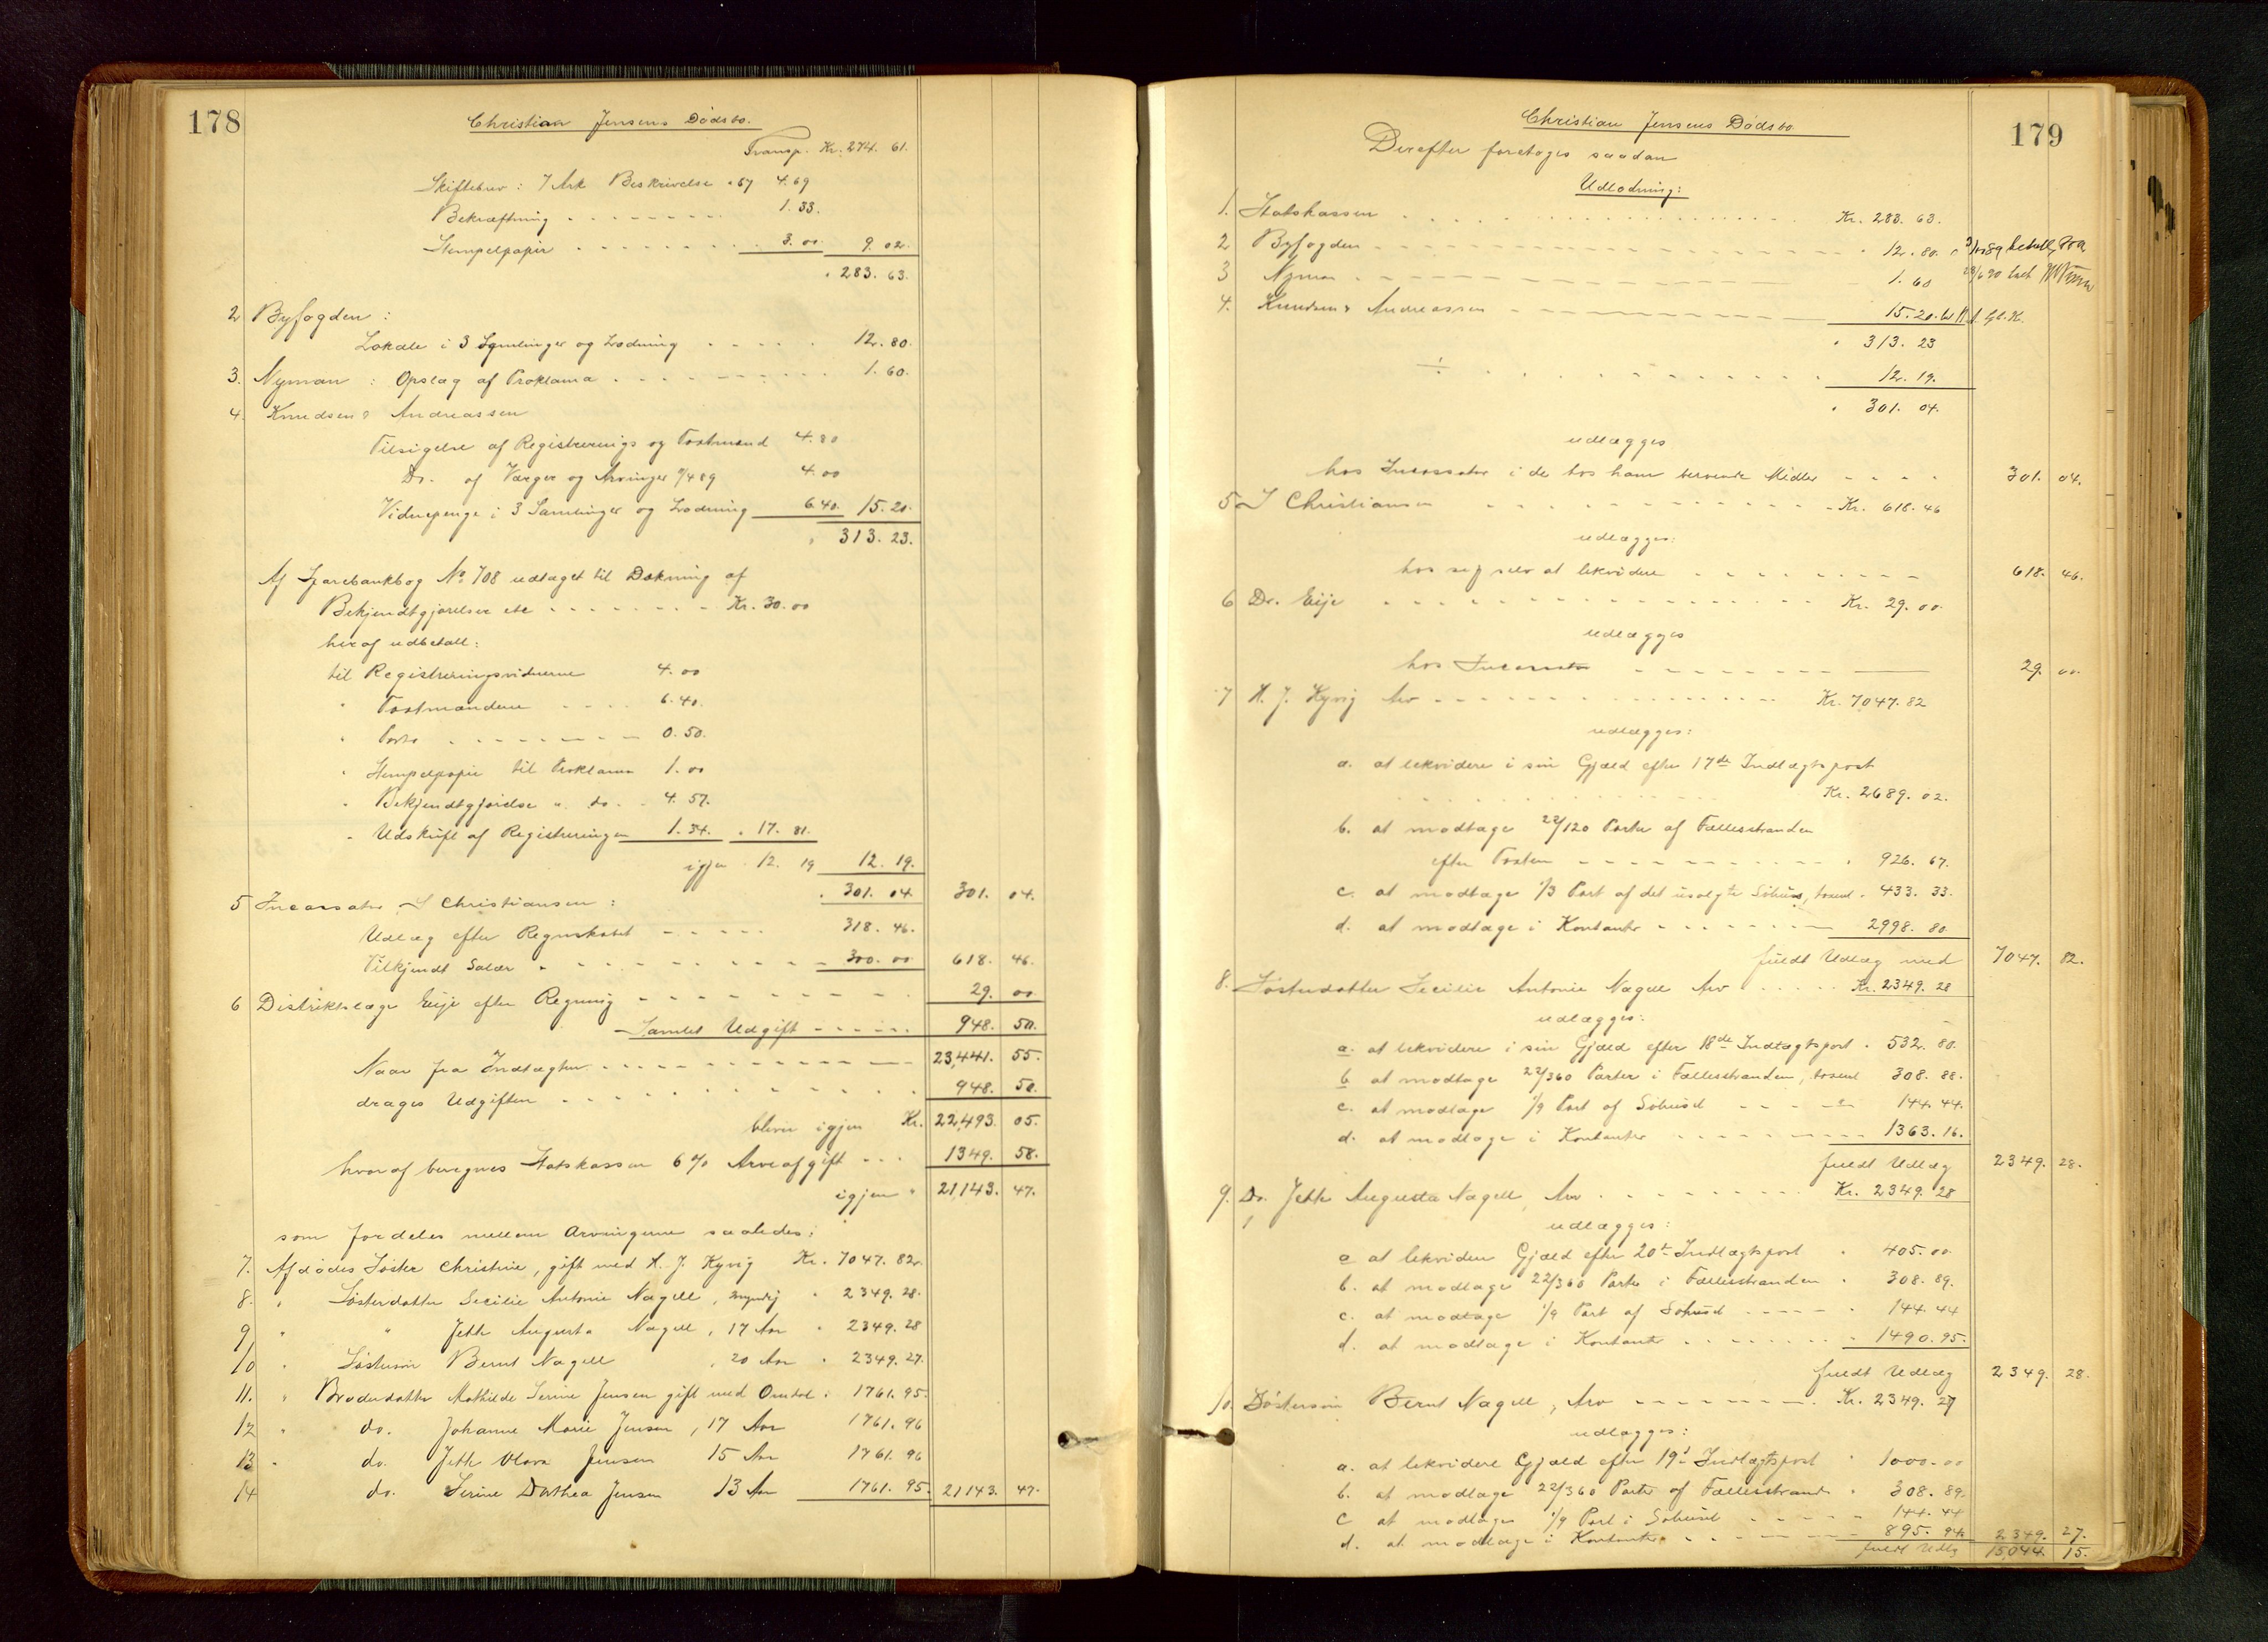 178
Christian Jensens Dødsbo.
Transp. Kr. 274. 61.
Skiftebrev: 7 Ark Beskrivelse " 67 4. 69
Bekræftning 1. 33.
Stempelpapir 3. 00 9. 02.
" 283. 63.
2 Byfogden:
Lokale i 3 Samlinger og Lodning 12. 80.
3. Nyman: Opslag af Proklama 1. 60.
4. Knudsen & Andreassen
Tilsigelse af Registrerings og Taxtmænd 4. 80
Do. af Værger og Arvinger /4 89 4. 00
Vidnepenge i 3 Samlinger og Lodning 6 40. 15. 20.
" 313. 23.
Af Sparebankbog No 708 udtaget til Dækning af
Bekjendtgjørelser etc Kr. 30. 00
heraf udbetalt:
til Registreringsvidnerne 4. 00
" Taxtmændene 6. 40.
" Porto 0. 50.
" Stempelpapir til Proklama 1. 00
" Bekjendtgjørelse " do. 4. 57.
" Udskrift af Registreringen 1. 34. " 17. 81.
igjen 12. 19 12. 19.
" 301. 04 301. 04.
5 Incassator S Christiansen:
Udlæg efter Regnskabet 318. 46.
Tilkjendt Salær 300. 00 618. 46.
6 Distriktslæge Eije efter Regning 29. 00
Samlet Udgift 948. 50.
Naar fra Indtægten 23,441. 55.
drages Udgiften 948. 50.
bliver igjen Kr. 22,493. 05.
hvoraf beregnes Statskassen 6 % Arveafgift 1349. 58.
igjen " 21,143. 47.
som fordeles mellem Arvingerne saaledes:
7. Afdødes Søster Christine, gift med H. J. Kyvig Kr. 7047. 82.
8. " Søsterdatter Secilie Antonie Nagell, myndig " 2349. 28.
9 " " Jette Augusta Nagell, 17 Aar " 2349. 28
10 " Søstersøn Bernt Nagell, 20 Aar " 2349. 27.
11. " Broderdatter Mathilde Serine Jensen gift med Omdal " 1761. 95.
12 " do. Johanne Marie Jensen, 17 Aar 1761. 96
13 " do. Jette Olava Jensen 15 Aar 1761. 96
14 do. Serine Dorthea Jensen 13 Aar 1761. 95. 21143. 47.
179
Christian Jensens Dødsbo
Derefter foretoges saadan
Udlodning:
1. Statskassen Kr. 283. 63.
2 Byfogden " 12. 80.
3 Nyman 1. 60
4. Knudsen & Andreassen 15. 20.
" 313. 23
÷ 12. 19.
" 301. 04.
udlægges
hos Incassator i de hos ham beroende Midler 301. 04.
5 S Christiansen Kr. 618. 46
udlægges:
hos sig selv at likvidere 618. 46.
6 Dr. Eije Kr. 29. 00
udlægges
hos Incassator 29. 00.
7 H. J. Kyvig Arv Kr. 7047. 82
udlægges:
a. at likvidere i sin Gjæld efter 17de Indtægtspost
Kr. 2689. 02.
b. at modtage 22/120 Parter af Fællesstranden
efter Taxten " 926. 67.
c. at modtage 1/3 Part af det usolgte Søhus, taxeret " 433. 33.
d. at modtage i Kontanter 2998. 80
fuldt Udlæg med 7047. 82.
8. Søsterdatter Secilie Antonie Nagell Arv Kr. 2349. 28
udlægges:
a. at likvidere i sin Gjæld efter 18de Indtægtspost " 532. 80.
b at modtage 22/360 Parter i Fællesstranden, taxeret 308. 88.
c. at modtage 1/9 Part af Søhuset 144. 44.
d. at modtage i Kontanter 1363. 16.
fuldt Udlæg 2349. 28.
9. Do. Jette Augusta Nagell, Arv Kr. 2349. 28
udlægges:
a at likvidere Gjæld efter 20de Indtægtspost " 405. 00
b. at modtage 22/360 Parter i Fællesstranden " 308. 89.
c. at modtage 1/9 Part af Søhuset " 144. 44
d. at modtage i Kontanter " 1490. 95.
fuldt Udlæg 2349. 28.
10. Søstersøn Bernt Nagell, Arv Kr. 2349. 27
udlægges:
a. at likvidere Gjæld efter 19d Indtægtspost " 1000. 00
b. at modtage 22/360 Parter af Fællesstrand " 308. 89.
c at modtage 1/9 Part i Søhuset 144. 44
d. at modtage i Kontanter 895. 94. 2349. 27.
fuldt Udlæg 15,044. 15.